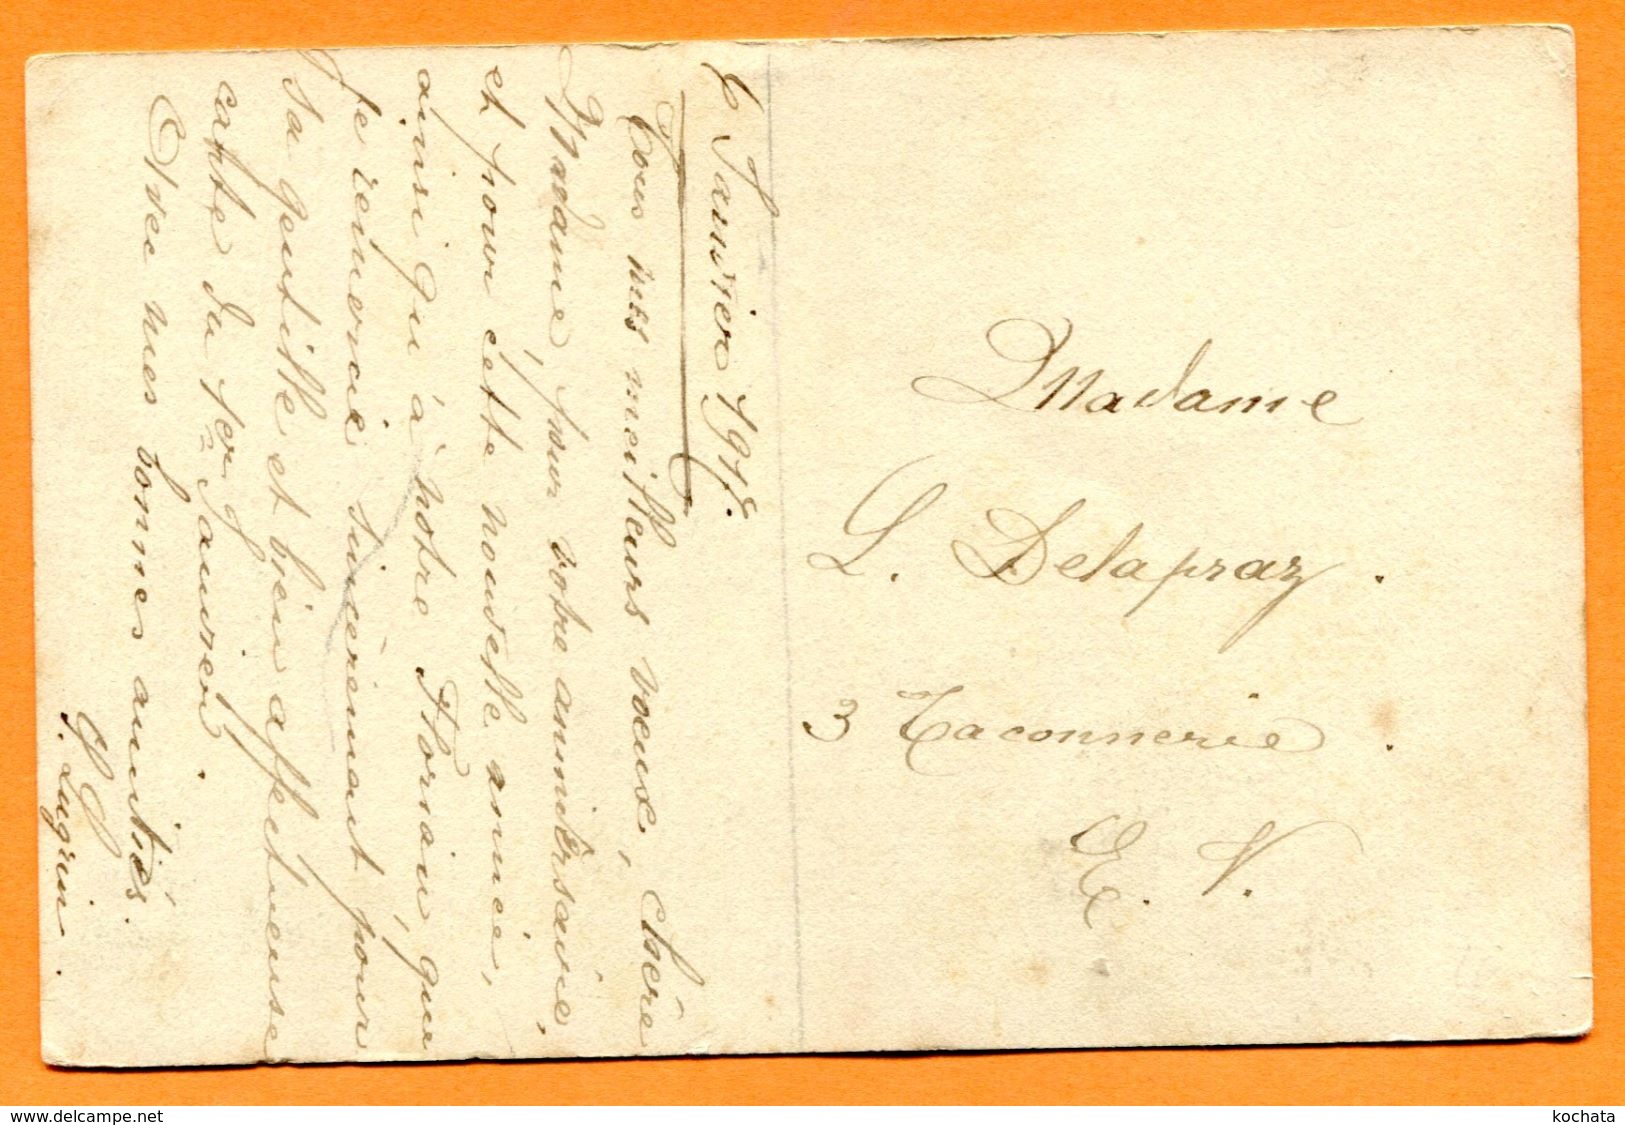 6 Janvier 1918.
Tous mes meilleurs voeux, chère
Madame, pour votre anniversaire,
et pour cette nouvelle année,
ainsi qu'à votre Florian, que
je remercie sincèrement pour
sa gentille et bien affectueuse
carte du 1er Janvier.
Avec mes bonnes amitiés.
Lugrin.
Madame
L. Delapraz.
3 Taconnerie.
E. V.
www.delcampe.net
kochata